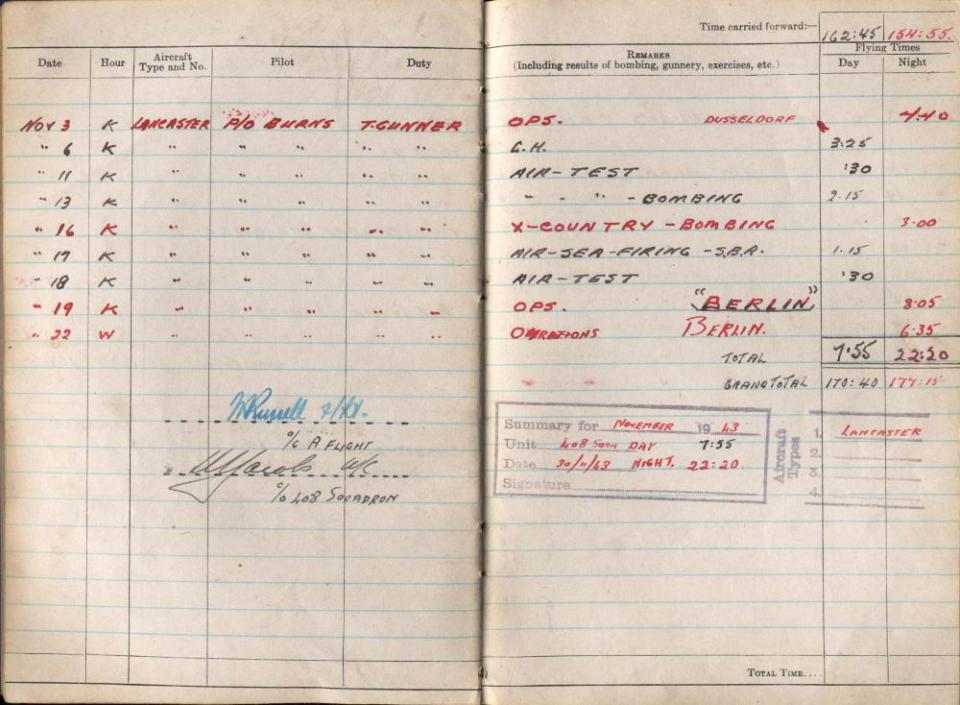 Time carried forward:— 162:45 154:55
Date Hour Aircraft Type and No. Pilot Duty REMARKS (Including results of bombing, gunnery, exercises, etc.) Flying Times Day Night
NOV 3 K LANCASTER P/O BURNS T.GUNNER OPS. DUSSELDORF 4:40
" 6 K " " " " " G.H. 3:25
" 11 K " " " " " AIR-TEST :30
" 13 K " " " " " " - " - BOMBING 2.15
" 16 K " " " " " X-COUNTRY - BOMBING 3:00
" 17 K " " " " " AIR-SEA-FIRING - S.B.A. 1.15
" 18 K " " " " " AIR-TEST :30
" 19 K " " " " " OPS. "BERLIN" 8:05
" 22 W " " " " " OPERATIONS BERLIN. 6:35
TOTAL 7:55 22:20
GRAND TOTAL 170:40 177:15
Russell F/Lt.
O/C A FLIGHT
Jacobs W/C
O/C 408 SQUADRON
Summary for NOVEMBER 1943
Unit 408 SQDN DAY 7:55
Date 30/11/43 NIGHT. 22:20
Signature
Aircraft Types
1. LANCASTER
2.
3.
4.
TOTAL TIME....